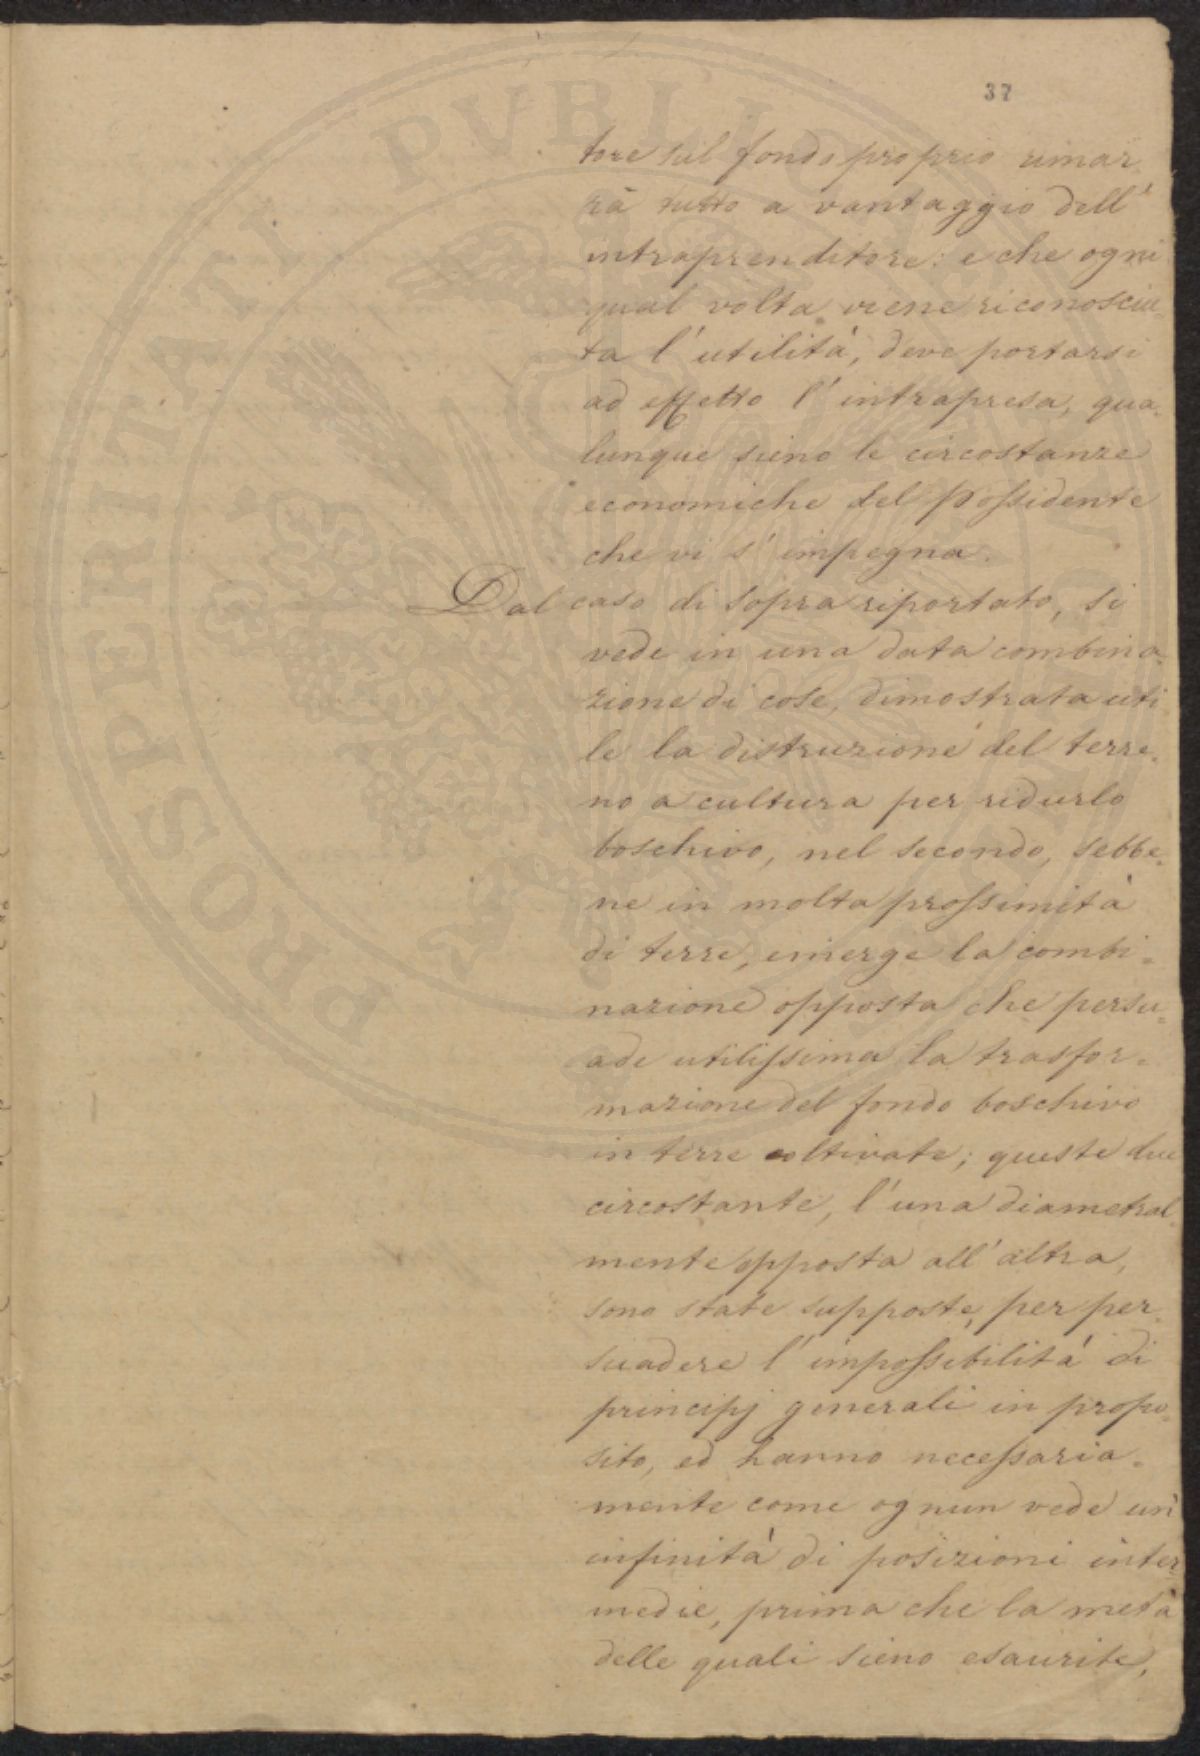 37
tore sul fondo proprio rimar-
rà tutto a vantaggio dell'
intraprenditore: e che ogni
qual volta viene riconosciu-
ta l'utilità, deve portarsi
ad effetto l'intrapresa, qua-
lunque sieno le circostanze
economiche del possidente
che vi s'impegna.
Dal caso di sopra riportato, si
vede in una data combina-
zione di cose, dimostrata uti
le la distruzione del terre-
no a cultura per ridurlo
boschivo, nel secondo, sebbe-
ne in molta prossimità
di terre, emerge la combi-
nazione opposta che persu-
ade utilissima la trasfor-
mazione del fondo boschivo
in terre coltivate; queste due
circostante, l'una diametral-
mente opposta all'altra,
sono state supposte, per per-
suadere l'impossibilità di
principj generali in propo-
sito, ed hanno necessaria-
mente come ognun vede un'
infinità di posizioni inter-
medie, prima che la metà
delle quali sieno esaurite,
PROSPERITATI PVBLICAE